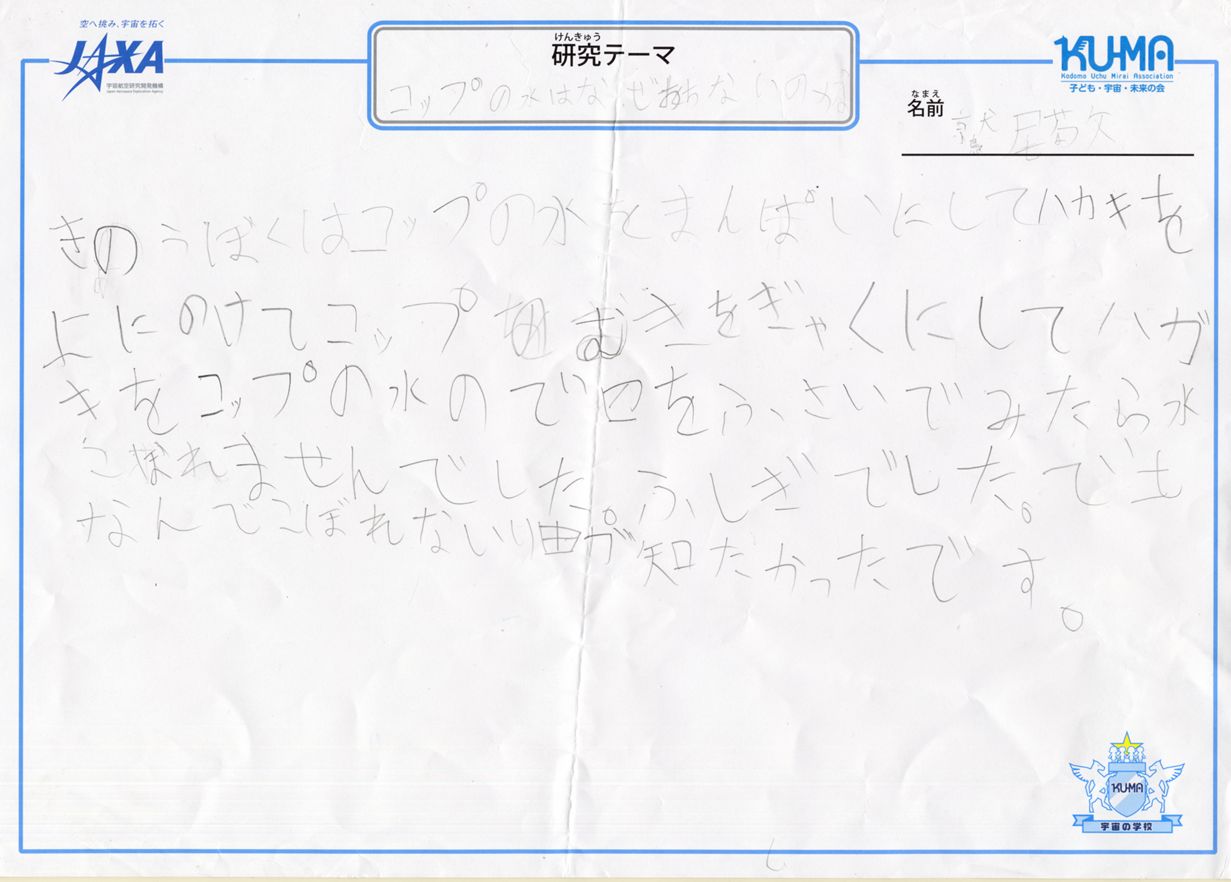 空へ挑み、宇宙を拓く
JAXA
宇宙航空研究開発機構
Japan Aerospace Exploration Agency
けんきゅう
研究テーマ
コップの水はなぜ落ちないのかな
KU-MA
Kodomo Uchu Mirai Association
子ども・宇宙・未来の会
なまえ
名前
鷲尾
きのうぼくはコップの水をまんぱいにしてハカキを
上にのけてコップむきをぎゃくにしてハガ
キをコップの水ので口をふさいでみたら水
こぼれませんでした。ふしぎでした。でも
なんでこぼれないり由が知たかったです。
KUMA
宇宙の学校